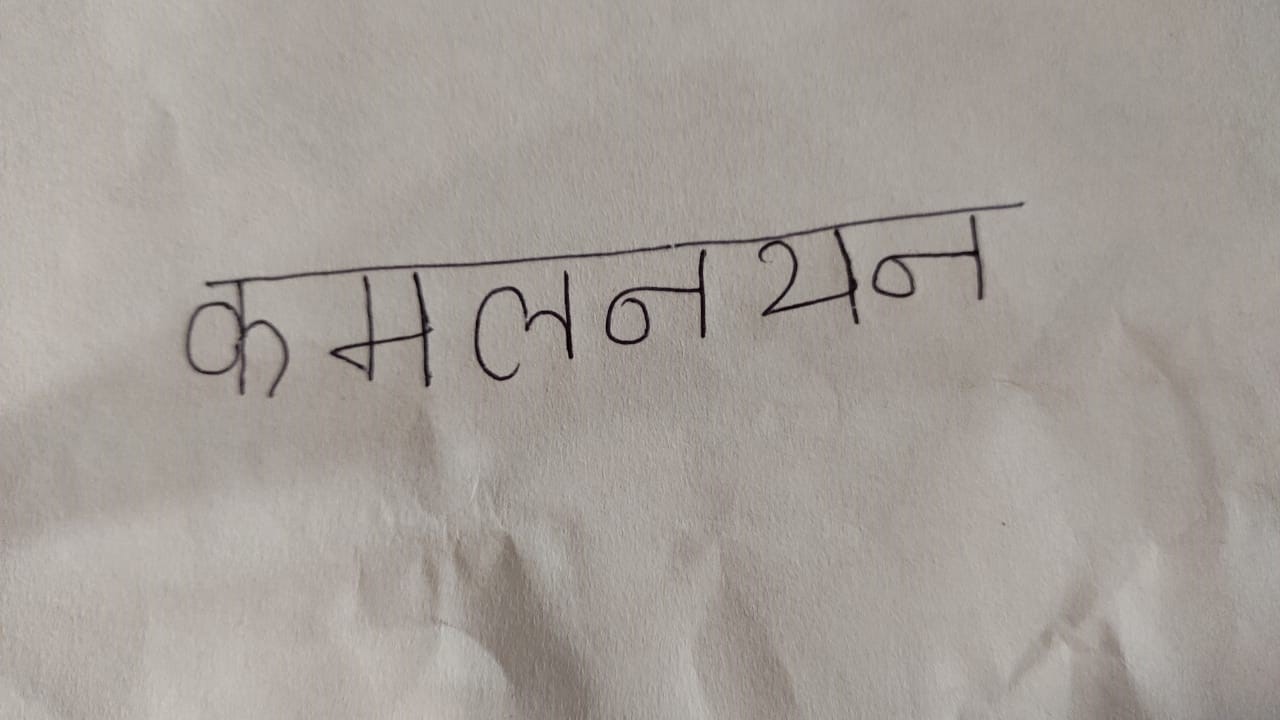 कमलनयन